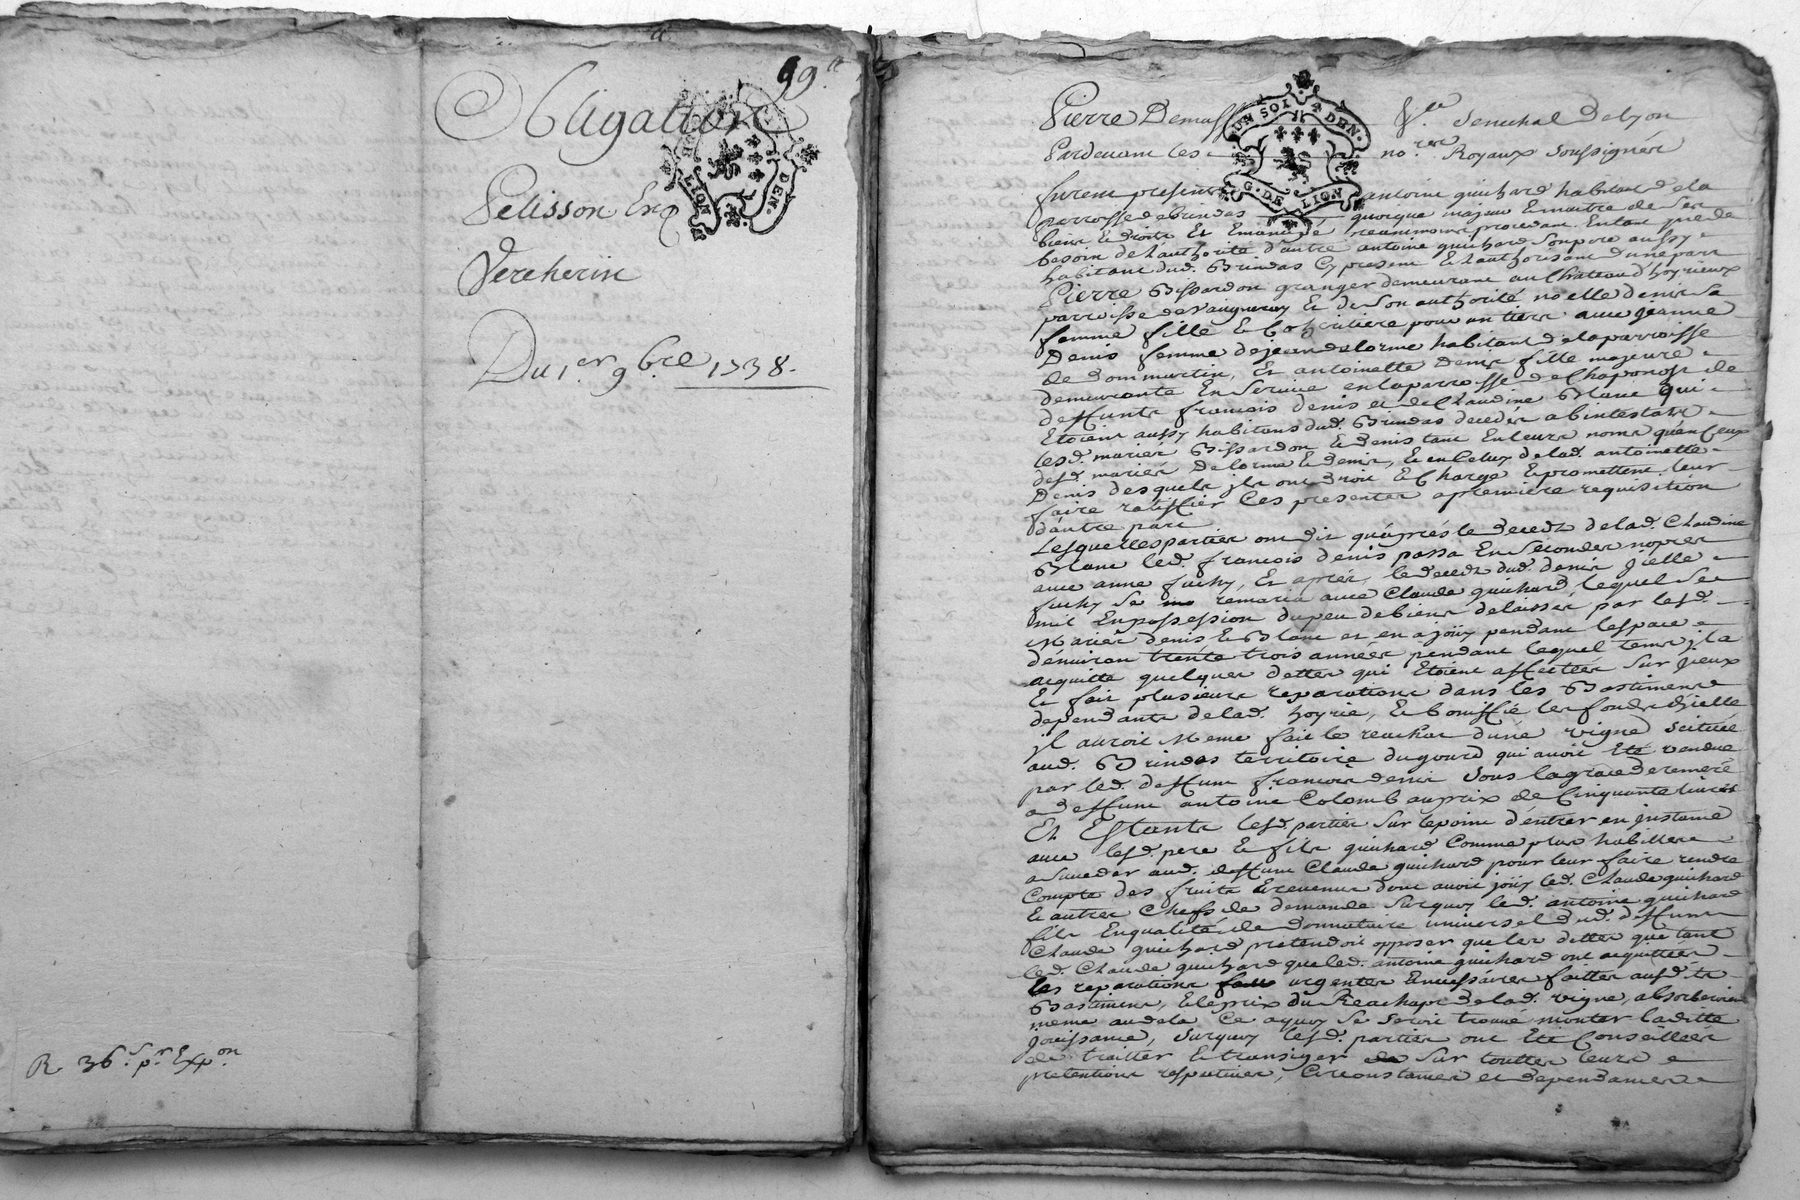 99.
Obligation
Pelisson Exp
Vercherin
Du 1.er 9bre 1738.
R. 36.s pr Exp.on
UN SOL 4 DEN.
G. DE LION
Pierre Demass Vte. Senechal de lyon
Pardevant les no.res Royaux soussignés
furent presents antoine guichard habitant de la
parroisse de Brindas quoique majeur et maitre de ses
biens et droits et Emancipé neammoins procedant Entant que de
besoin de l'authorité d'autre antoine guichard son pere aussy
habitant dud. Brindas Cy present et l'authorisant d'une part
Pierre Bissardon granger demeurant au Chateau d'hoyrieux
parroisse de Vaugneray et de son authorité noelle denis sa
femme fille et Cohéritiere pour un tiers avec jeanne
Denis femme de jean delorme habitant de la parroisse
de dommartin, Et antoinette denis fille majeure
demeurante En service en la parroisse de Chaponost de
deffunts francois denis et de Claudine Blanc qui
Etoient aussy habitans dud. Brindas decedés abintestats
lesd. mariés Bissardon et denis tant En leurs noms qu'en Ceux
desd. mariés Delorme et denis, et en Celuy de lad. antoinette
Denis desquels ils ont droit et Charge et promettent leur
faire ratiffier Ces presentes a premiere requisition
d'autre part
Lesquelles parties ont dit qu'aprés le deceds de lad. Claudine
Blanc led. francois denis passa En secondes nopces
avec anne fuchy, Et aprés le deceds dud. denis jcelle
fuchy se remaria avec Claude guichard lequel se
mit En possession du peu de biens delaissés par lesd.
Mariés denis et Blanc et en a joüy pendant l'espace
d'environ trente trois années pendant lequel tems il a
acquitté quelques dettes qui Etoient affectées sur jceux
Et fait plusieurs reparations dans les Bastiments
dependants de lad. hoyrie, et boniffié les fonds d'icelle
jl auroit Meme fait le reachat d'une vigne scituée
aud. Brindas territoire du gourd qui avoit Eté vendue
par led. deffunt francois denis sous la grace de remeré
a deffunt antoine Colomb au prix de Cinquante livres
Et Estants lesd. parties sur le point d'entrer en jnstance
avec lesd. pere et fils guichard Comme plus habilles
a succeder aud. deffunt Claude guichard pour leur faire rendre
Compte des fruits et revenus dont avoit joüy led. Claude guichard
et autres Chefs de demande surquoy led. antoine guichard
fils En qualité de donnataire universel dud. deffunt
Claude guichard pretendoit opposer que les dettes que tant
led. Claude guichard que led. antoine guichard ont acquittées
les reparations urgentes et necessaires faittes ausd. ts
Bastiments, et le prix du Reachapt de lad. vigne, absorberoient
meme audela Ce aquoy se seroit trouvé monter laditte
jouissance, surquoy lesd. parties ont Eté Conseillées
de traitter et transiger sur touttes leurs
pretentions respectives, Circonstances et dependances